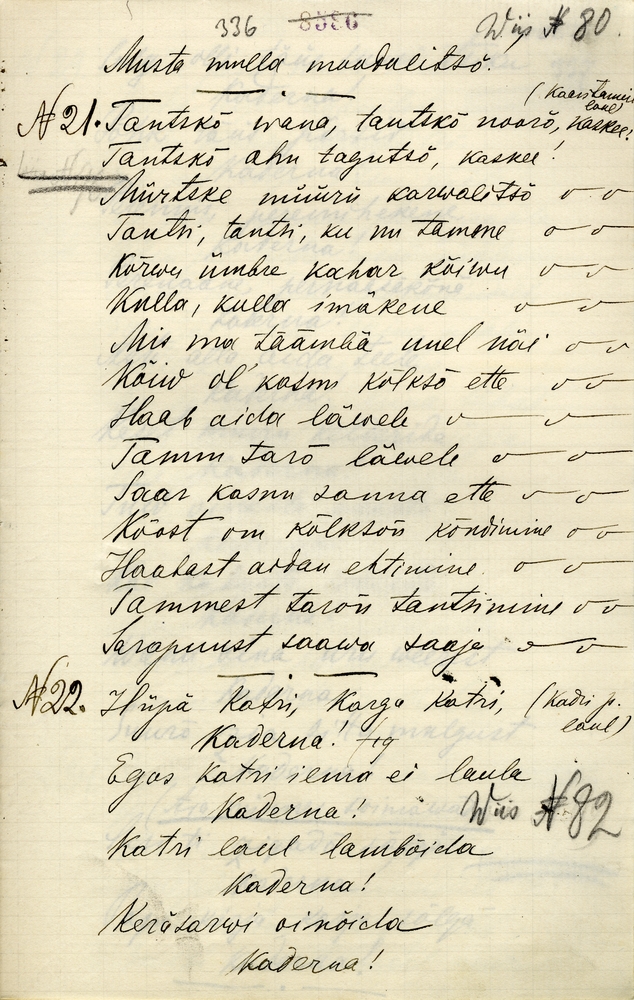 336 8596 Wiis № 80.
Musta mulla maadalitsõ.
(Kaasitamise laul)
№ 21. Tantskõ wana, tantskõ noorõ, kaskee!
Tantskõ ahu tagutsõ, kaskee!
Mürtske müürü karwalitsõ
Tantsi, tantsi, ku nu tamme
Kõrwu ümbre kahar kõiwu
Kulla, kulla imäkene
Mis ma täämbä unel näi
Kõiw ol' kasnu kõlksõ ette
Haab aida läwele
Tamm tarõ läwele
Saar kasnu sanna ette
Kõost om kõlksõn kõndimine
Haabast aidan ehtimine
Tammest tarõn tantsimine
Sarapuust saawa saaja
№ 22. Hüpä Katri, Karga Katri, (Kadri p. laul)
Kaderna!
Egas Katri ilma ei laula
Kaderna!
Wiis № 82
Katri laul lambõida
Kaderna!
Keräsarwi oinõida
Kaderna!